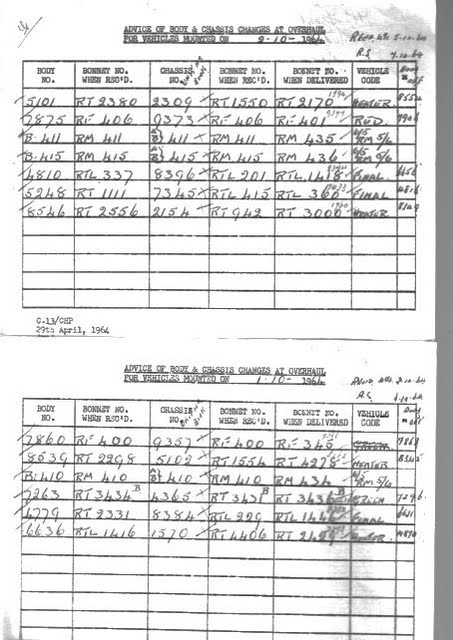 ADVICE OF BODY & CHASSIS CHANGES AT OVERHAUL
FOR VEHICLES MOUNTED ON 2-10-1964
BODY NO. BONNET NO. WHEN REC'D. CHASSIS NO. BONNET NO. WHEN REC'D. BONNET NO. WHEN DELIVERED VEHICLE CODE
5101 RT 2380 2309 RT 1550 RT 2170 HEATER
7875 RF 406 9373 RF 406 RF 401 RED.
B.411 RM 411 411 RM 411 RM 435 RM 5/6
B.415 RM 415 415 RM 415 RM 436 RM 5/6
4810 RTL 337 8396 RTL 201 RTL 1418 FINAL
5248 RT 1111 7345 RTL 415 RTL 360 FINAL
8546 RT 2556 2154 RT 942 RT 3000 HEATER
C.13/CHP
29th April, 1964
ADVICE OF BODY & CHASSIS CHANGES AT OVERHAUL
FOR VEHICLES MOUNTED ON 1-10-1964
BODY NO. BONNET NO. WHEN REC'D. CHASSIS NO. BONNET NO. WHEN REC'D. BONNET NO. WHEN DELIVERED VEHICLE CODE
7860 RF 400 9357 RF 400 RF 345
8539 RT 2298 5102 RT 1554 RT 4278 HEATER
B.410 RM 410 410 RM 410 RM 434 RM 5/6
7263 RT 3434 B 4365 RT 3431 B RT 3436 B
4779 RT 2331 8384 RTL 229 RTL 1446 FINAL
6636 RTL 1416 1570 RT 4406 RT 2499 HEATER